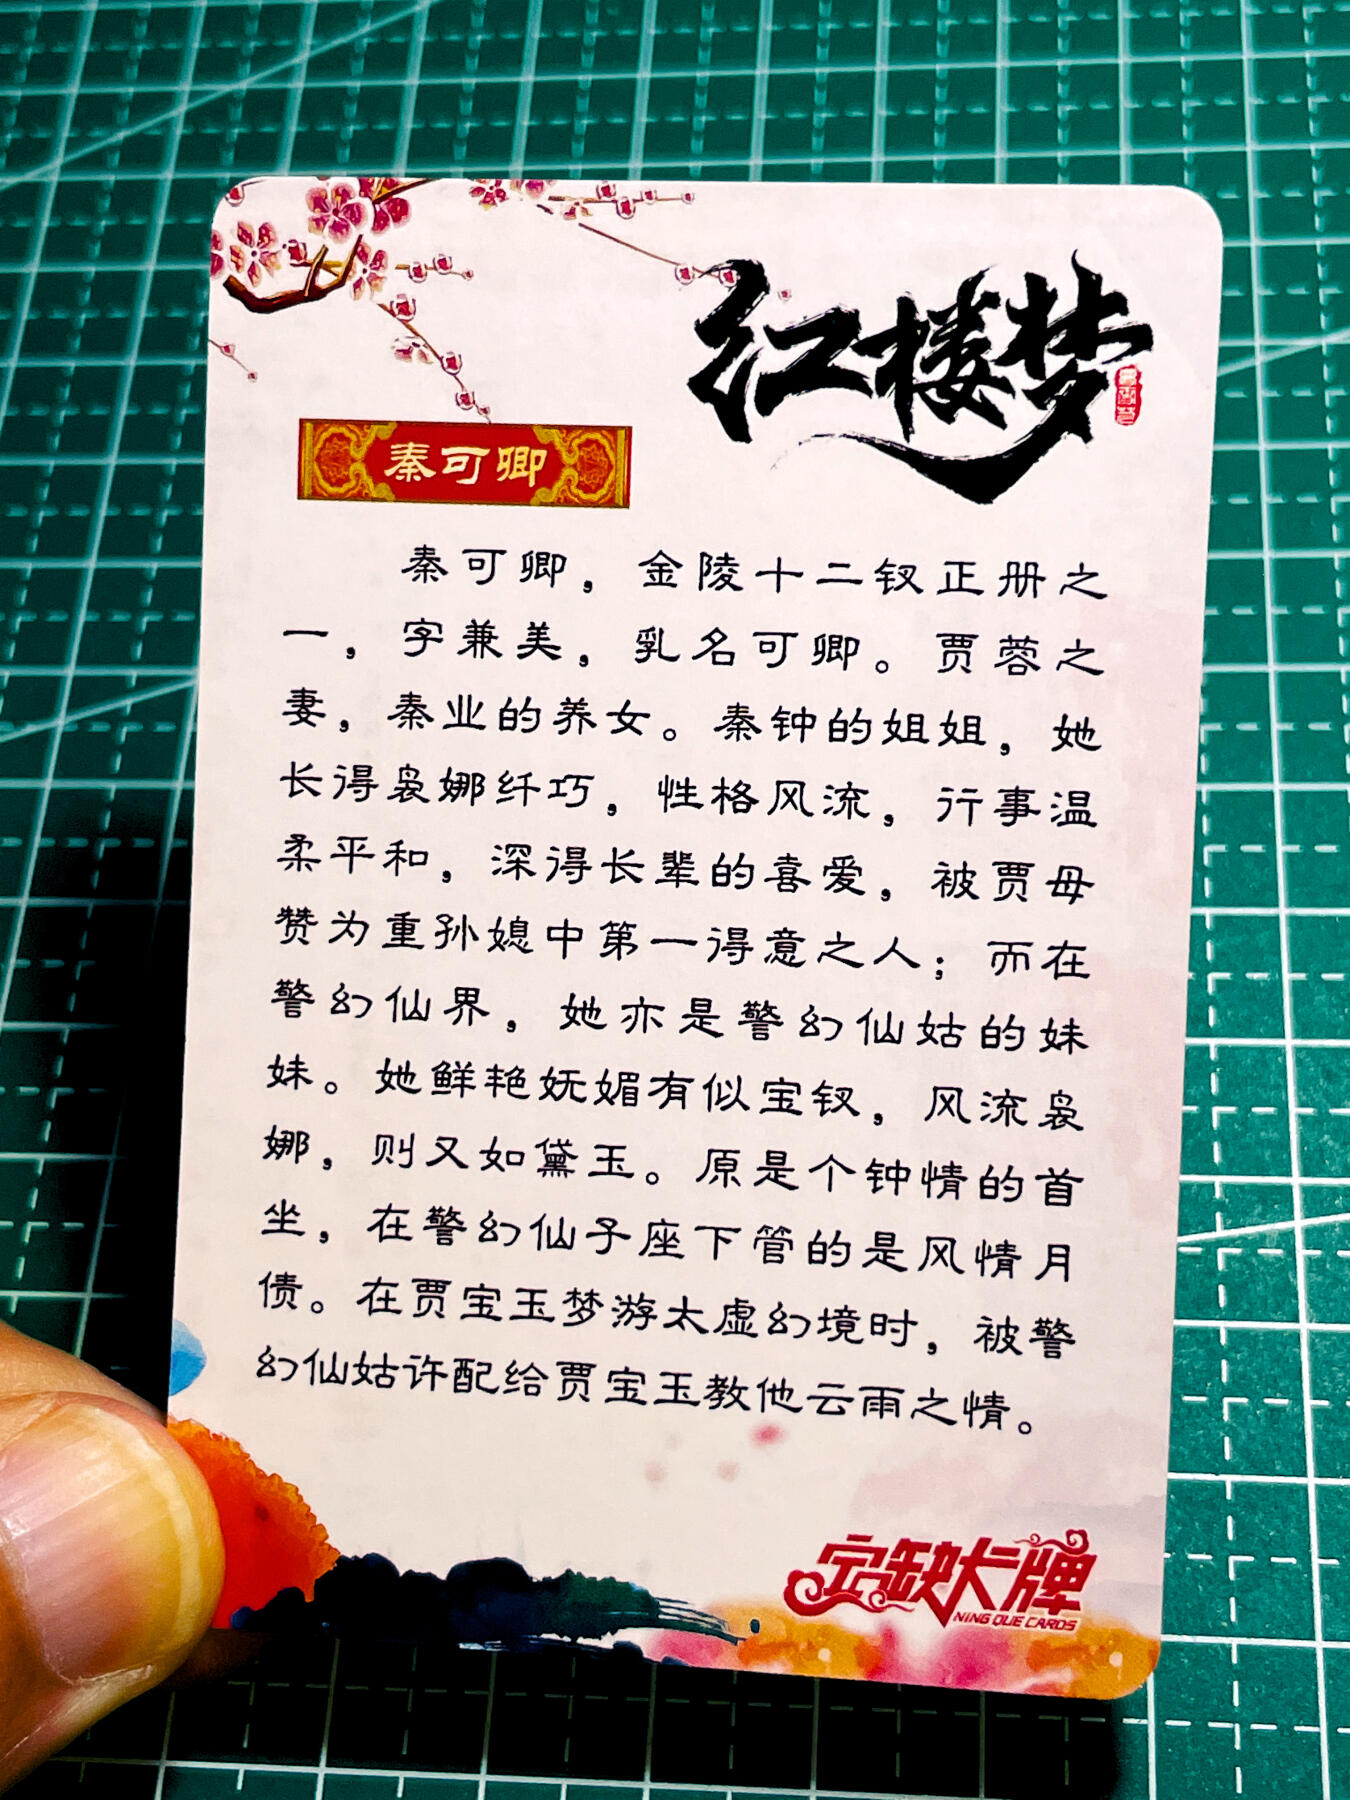 红楼梦
秦可卿
秦可卿，金陵十二钗正册之
一，字兼美，乳名可卿。贾蓉之
妻，秦业的养女。秦钟的姐姐，她
长得袅娜纤巧，性格风流，行事温
柔平和，深得长辈的喜爱，被贾母
赞为重孙媳中第一得意之人；而在
警幻仙界，她亦是警幻仙姑的妹
妹。她鲜艳妩媚有似宝钗，风流袅
娜，则又如黛玉。原是个钟情的首
坐，在警幻仙子座下管的是风情月
债。在贾宝玉梦游太虚幻境时，被警
幻仙姑许配给贾宝玉教他云雨之情。
宁缺大牌
NING QUE CARDS